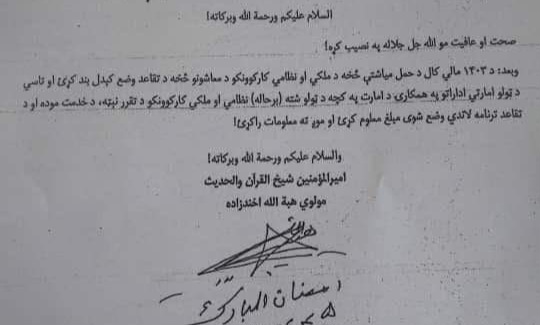 السلام علیکم ورحمة الله وبرکاته!
صحت او عافیت مو الله جل جلاله په نصیب کړه!
وبعد: د ۱۴۰۳ مالي کال د حمل میاشتې څخه د ملکي او نظامي کارکوونکو د معاشونو څخه د تقاعد وضع کېدل بند کړئ او تاسي
د ټولو امارتي اداراتو په همکارۍ د امارت په کچه د ټولو شته (برحاله) نظامي او ملکي کارکوونکو د تقرر نېټه، د خدمت موده او د
تقاعد ترنامه لاندي وضع شوی مبلغ معلوم کړئ او موږ ته معلومات راکړئ!
والسلام علیکم ورحمة الله وبرکاته!
امیرالمؤمنین شیخ القرآن والحدیث
مولوي هبة الله اخندزاده
رمضان المبارک